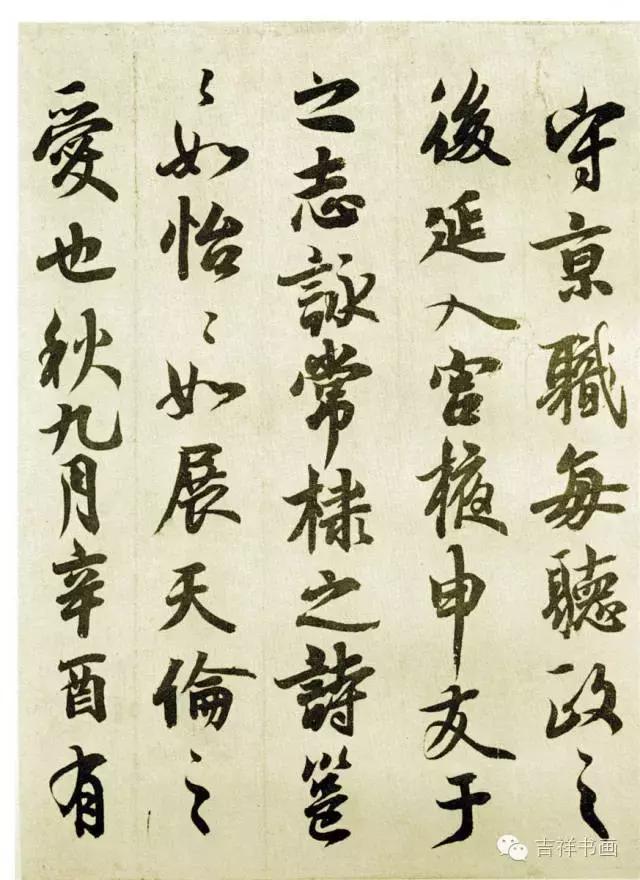 守京職每聽政之
後延入宮掖申友于
之志詠常棣之詩邕
〻如怡〻如展天倫之
愛也秋九月辛酉有
吉祥书画